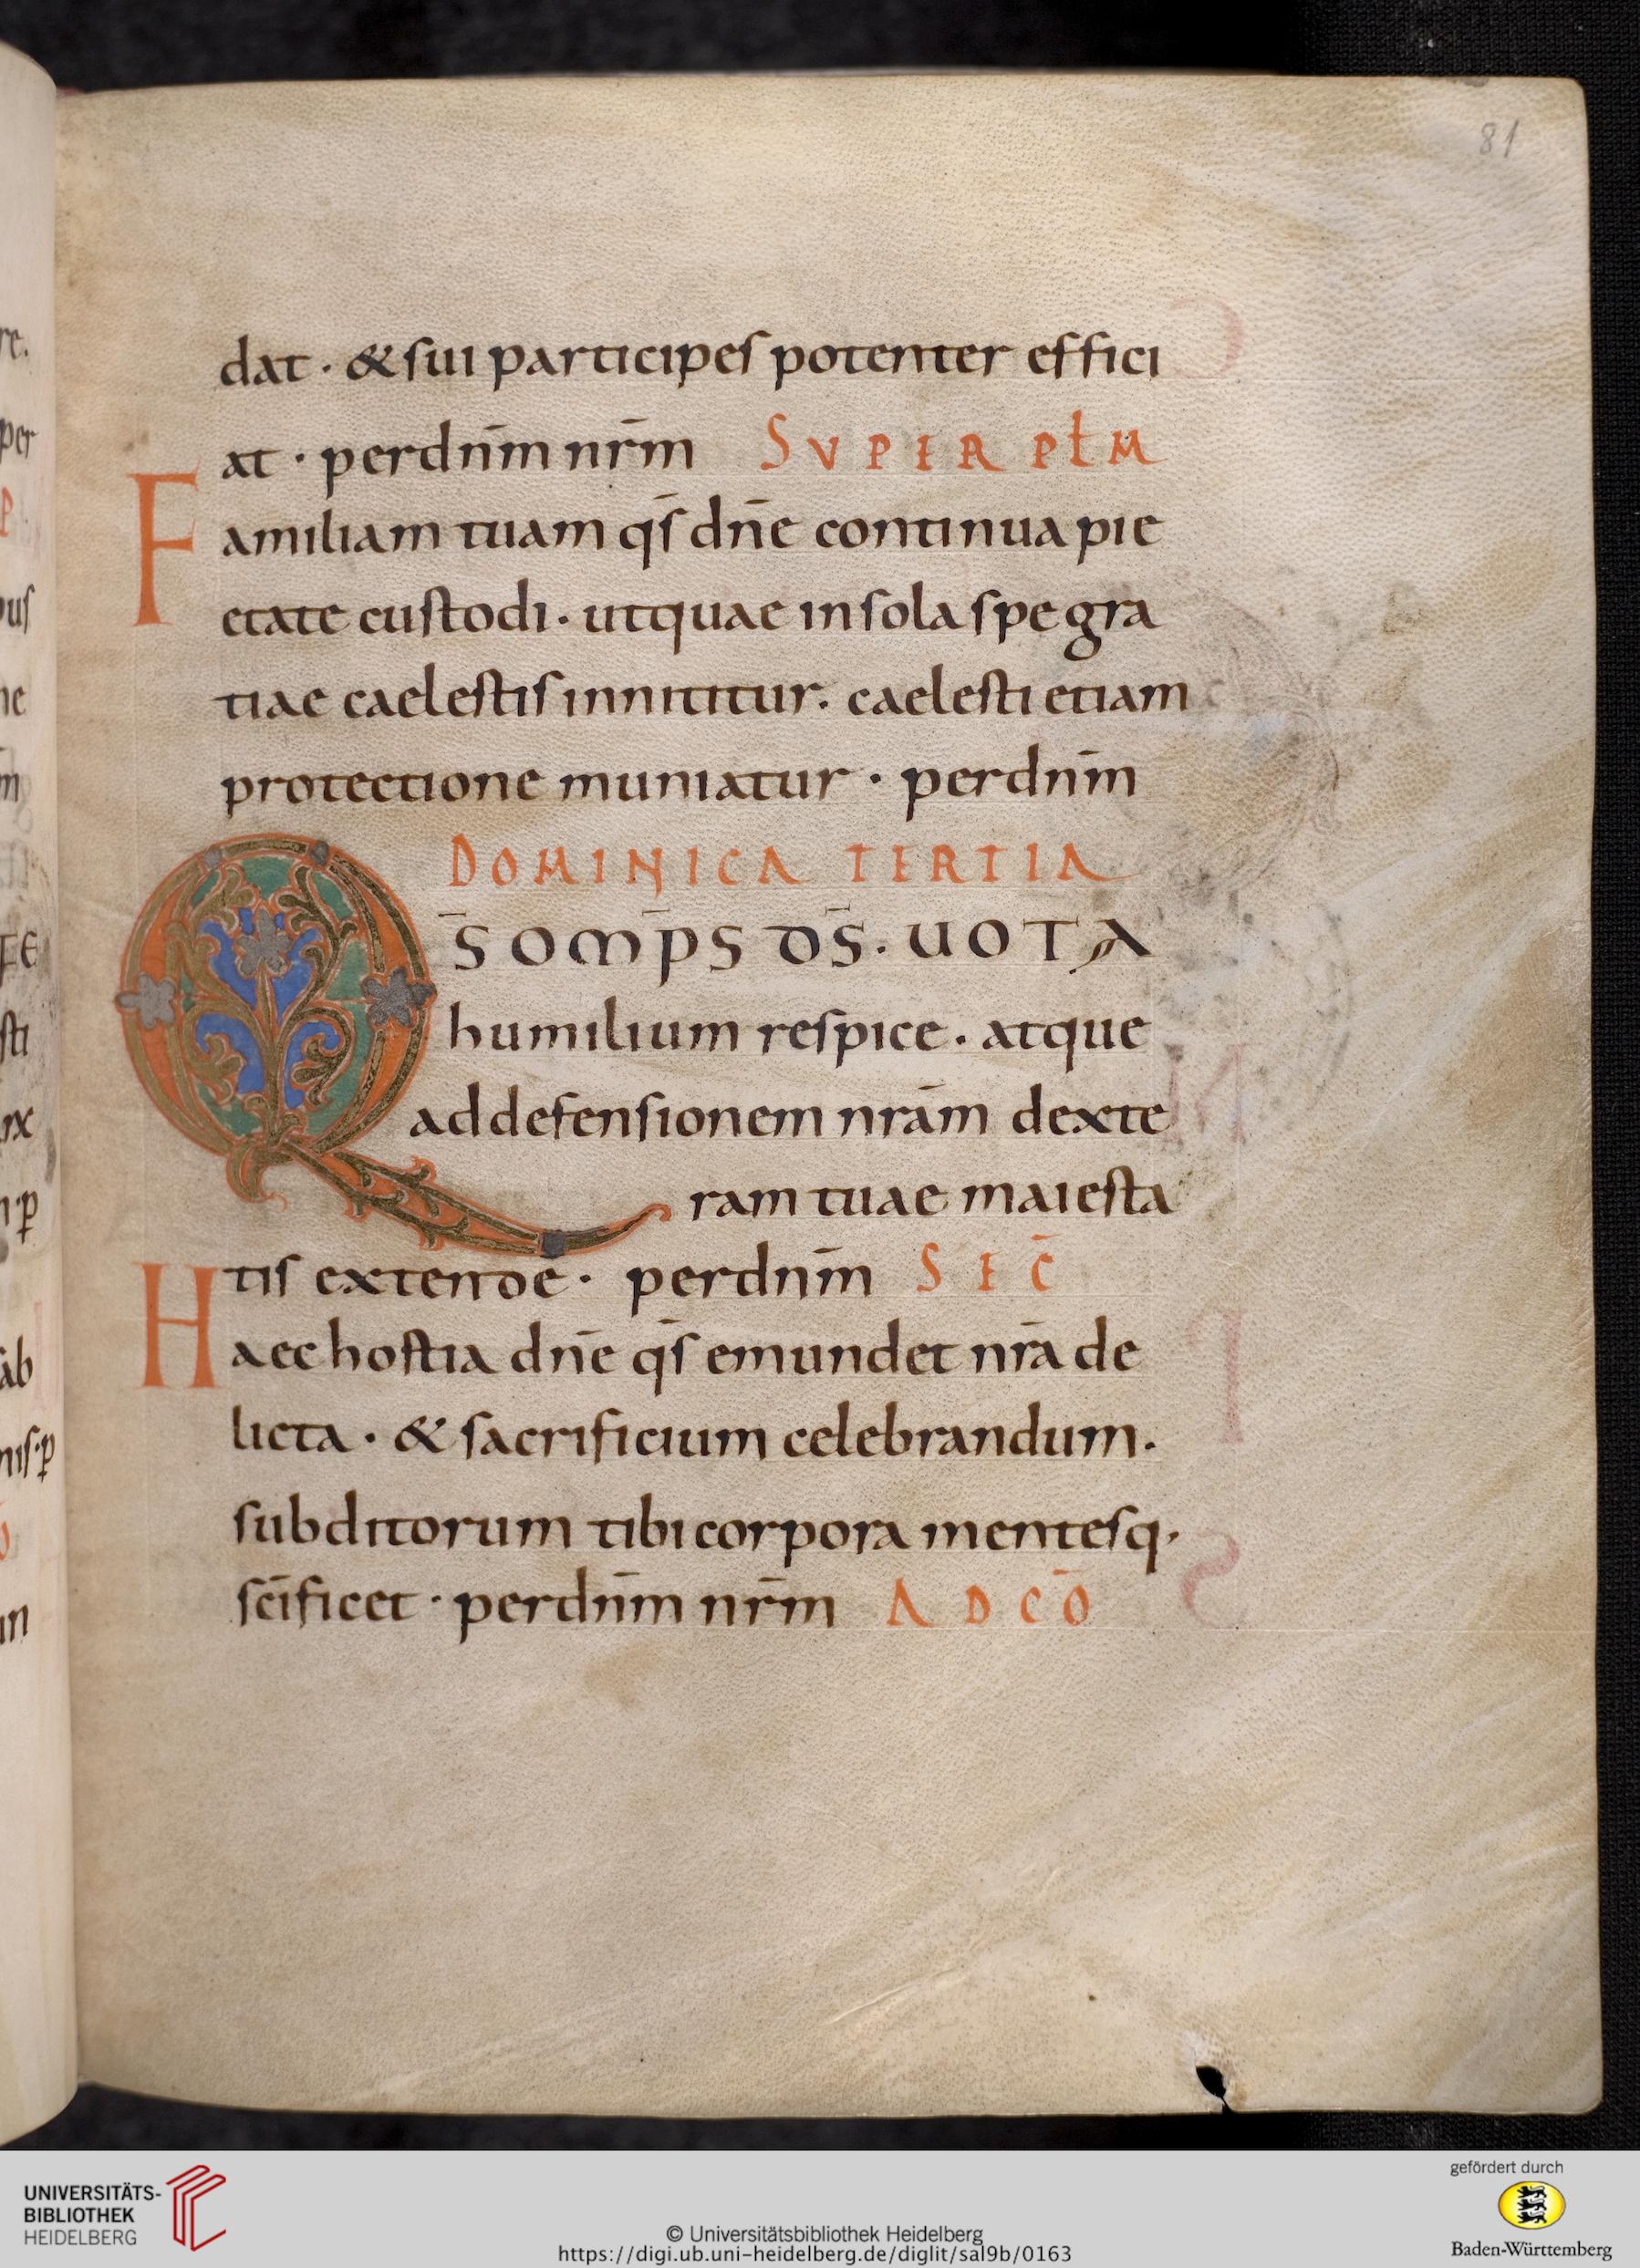 81
dat · & sui participes potenter effici
at · per dn̄m nr̄m SUPER PŁM
Familiam tuam qs̄ dn̄e continua pie
etate custodi · ut quae in sola spe gra
tiae caelestis innititur · caelesti etiam
protectione muniatur · per dn̄m
DOMINICA TERTIA
Q̄S OMP̄S D̄S · UOTA
humilium respice · atque
ad defensionem nrām dexte
ram tuae maiesta
tis extende · per dn̄m SEC̄
Haec hostia dn̄e qs̄ emundet nr̄a de
licta · & sacrificium celebrandum ·
subditorum tibi corpora mentesq·
sc̄ificet · per dn̄m nr̄m AD CŌ
UNIVERSITÄTS-
BIBLIOTHEK
HEIDELBERG
© Universitätsbibliothek Heidelberg
https://digi.ub.uni-heidelberg.de/diglit/sal9b/0163
gefördert durch
Baden-Württemberg